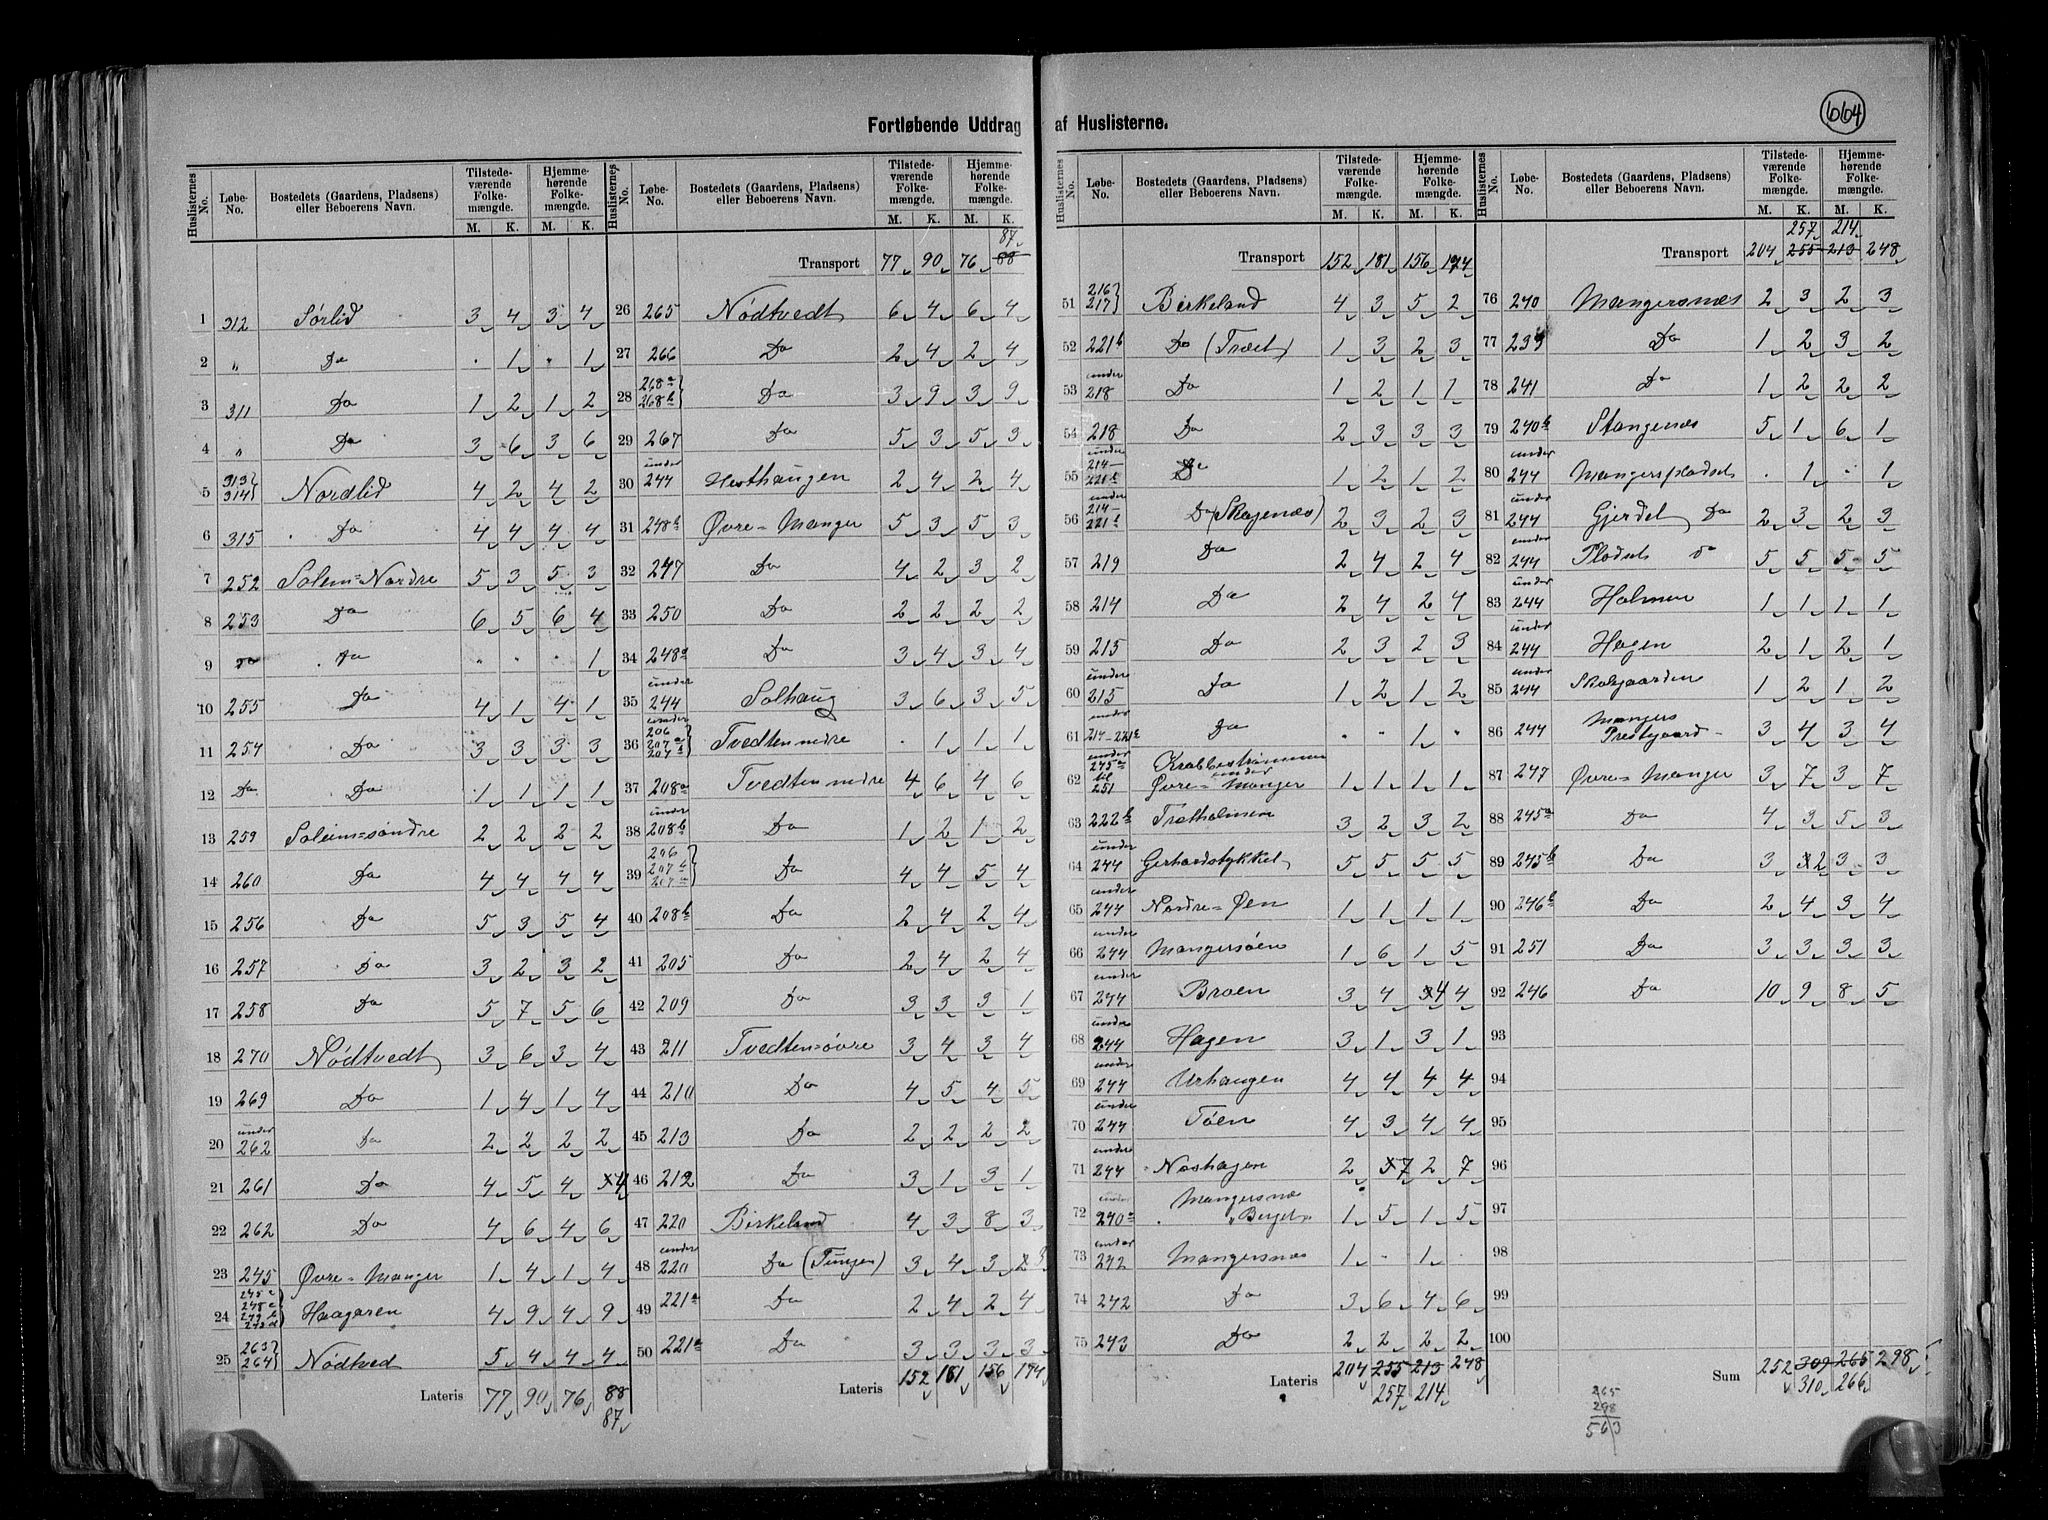 664
Fortløbende Uddrag af Huslisterne.
Huslisternes No. Løbe-No. Bostedets (Gaardens, Pladsens) eller Beboerens Navn. Tilstedeværende Folkemængde. M. K. Hjemmehørende Folkemængde. M. K.
1 312 Sørlid 3 4 3 4
2 " Do . 1 . 1
3 311 Do 1 2 1 2
4 " Do 3 6 3 6
5 313 314 Nordlid 4 2 4 2
6 315 Do 4 4 4 4
7 252 Solem=Nordre 5 3 5 3
8 253 Do 6 5 6 4
9 do do . . . 1
10 255 Do 4 1 4 1
11 254 Do 3 3 3 3
12 Do Do 1 1 1 1
13 259 Soleim=søndre 2 2 2 2
14 260 Do 4 4 4 4
15 256 Do 5 3 5 4
16 257 Do 3 2 3 2
17 258 Do 5 7 5 6
18 270 Nödtvedt 3 6 3 4
19 269 Do 1 4 1 4
20 under 262 Do 2 2 2 2
21 261 Do 4 5 4 4
22 262 Do 4 6 4 6
23 245 Øvre=Manger 1 4 1 4
24 Haagaren 4 9 4 9
25 263 264 Nödtved 5 4 4 4
Lateris 77 90 76 88
87
Huslisternes No. Løbe-No. Bostedets (Gaardens, Pladsens) eller Beboerens Navn. Tilstedeværende Folkemængde. M. K. Hjemmehørende Folkemængde. M. K.
87
Transport 77 90 76 88
26 265 Nödtvedt 6 4 6 4
27 266 Do 2 4 2 4
28 268a 268b Do 3 9 3 9
29 267 Do 5 3 5 3
30 under 244 Hesthaugen 2 4 2 4
31 248b Øvre=Manger 5 3 5 3
32 247 Do 4 2 3 2
33 250 Do 2 2 2 2
34 248a Do 3 4 3 4
35 under 244 Solhaug 3 6 3 5
36 under 206 207a 207b Tvedten nedre . 1 1 1
37 208a Tvedten nedre 4 6 4 6
38 under 208b Do 1 2 1 2
39 206 207b 207a Do 4 4 5 4
40 208b Do 2 4 2 4
41 205 Do 2 4 2 4
42 209 Do 3 3 3 1
43 211 Tvedten=øvre 3 4 3 4
44 210 Do 4 5 4 5
45 213 Do 2 2 2 2
46 212 Do 3 1 3 1
47 220 Birkeland 4 3 8 3
48 under 220 Do 3 4 3 3
49 221a Do 2 4 2 4
50 221a Do 3 3 3 3
Lateris 152 181 156 174
Huslisternes No. Løbe-No. Bostedets (Gaardens, Pladsens) eller Beboerens Navn. Tilstedeværende Folkemængde. M. K. Hjemmehørende Folkemængde. M. K.
Transport 152 181 156 174
51 216 217 Birkeland 4 3 5 2
52 221b Do (Træet) 1 3 2 3
53 under 218 Do 1 2 1 1
54 218 Do 2 3 3 3
55 under 214-221b Do 1 2 1 2
56 under 214-221b Do (Skagenæs) 2 3 2 3
57 219 Do 2 4 2 4
58 214 Do 2 4 2 4
59 215 Do 2 3 2 3
60 under 215 Do 1 2 1 2
61 under 214-221b Do . . 1 .
62 under 245a til 251 Krabbestrømmen under Øvre=Manger 1 1 1 1
63 222b Træholmen 3 2 3 2
64 under 244 Gerhardstykket 5 5 5 5
65 under 244 Nordre=Øen 1 1 1 1
66 under 244 Mangersøen 1 6 1 5
67 under 244 Broen 3 4 4 4
68 under 244 Hagen 3 1 3 1
69 under 244 Urhaugen 4 4 4 4
70 under 244 Töen 4 3 4 4
71 under 244 Noshagen 2 7 2 7
72 under 240a Mangersnæs Berget 1 5 1 5
73 under 242 Mangersnæs 1 . 1 .
74 242 Do 3 6 4 6
75 243 Do 2 2 2 2
Lateris 204 255 213 248
257 214
Huslisternes No. Løbe-No. Bostedets (Gaardens, Pladsens) eller Beboerens Navn. Tilstedeværende Folkemængde. M. K. Hjemmehørende Folkemængde. M. K.
257 214
Transport 204 255 213 248
76 240 Mangersnæs 2 3 2 3
77 239 Do 1 2 3 2
78 241 Do 1 2 2 2
79 240b Stangenæs 5 1 6 1
80 under 244 Mangerspladset . 1 . 1
81 under 244 Gjerdet Do 2 3 2 3
82 under 244 Pladset do 5 5 5 5
83 under 244 Holmen 1 1 1 1
84 under 244 Hagen 2 1 2 1
85 under 244 Skolegaarden 1 2 1 2
86 244 Mangers Prestegaard 3 4 3 4
87 247 Øvre=Manger 3 7 3 7
88 245a Do 4 3 5 3
89 245b Do 3 2 3 3
90 246b Do 2 4 3 4
91 251 Do 3 3 3 3
92 246 Do 10 9 8 5
93
94
95
96
97
98
99
100
Sum 252 309 265 298
310 266
265
298
563